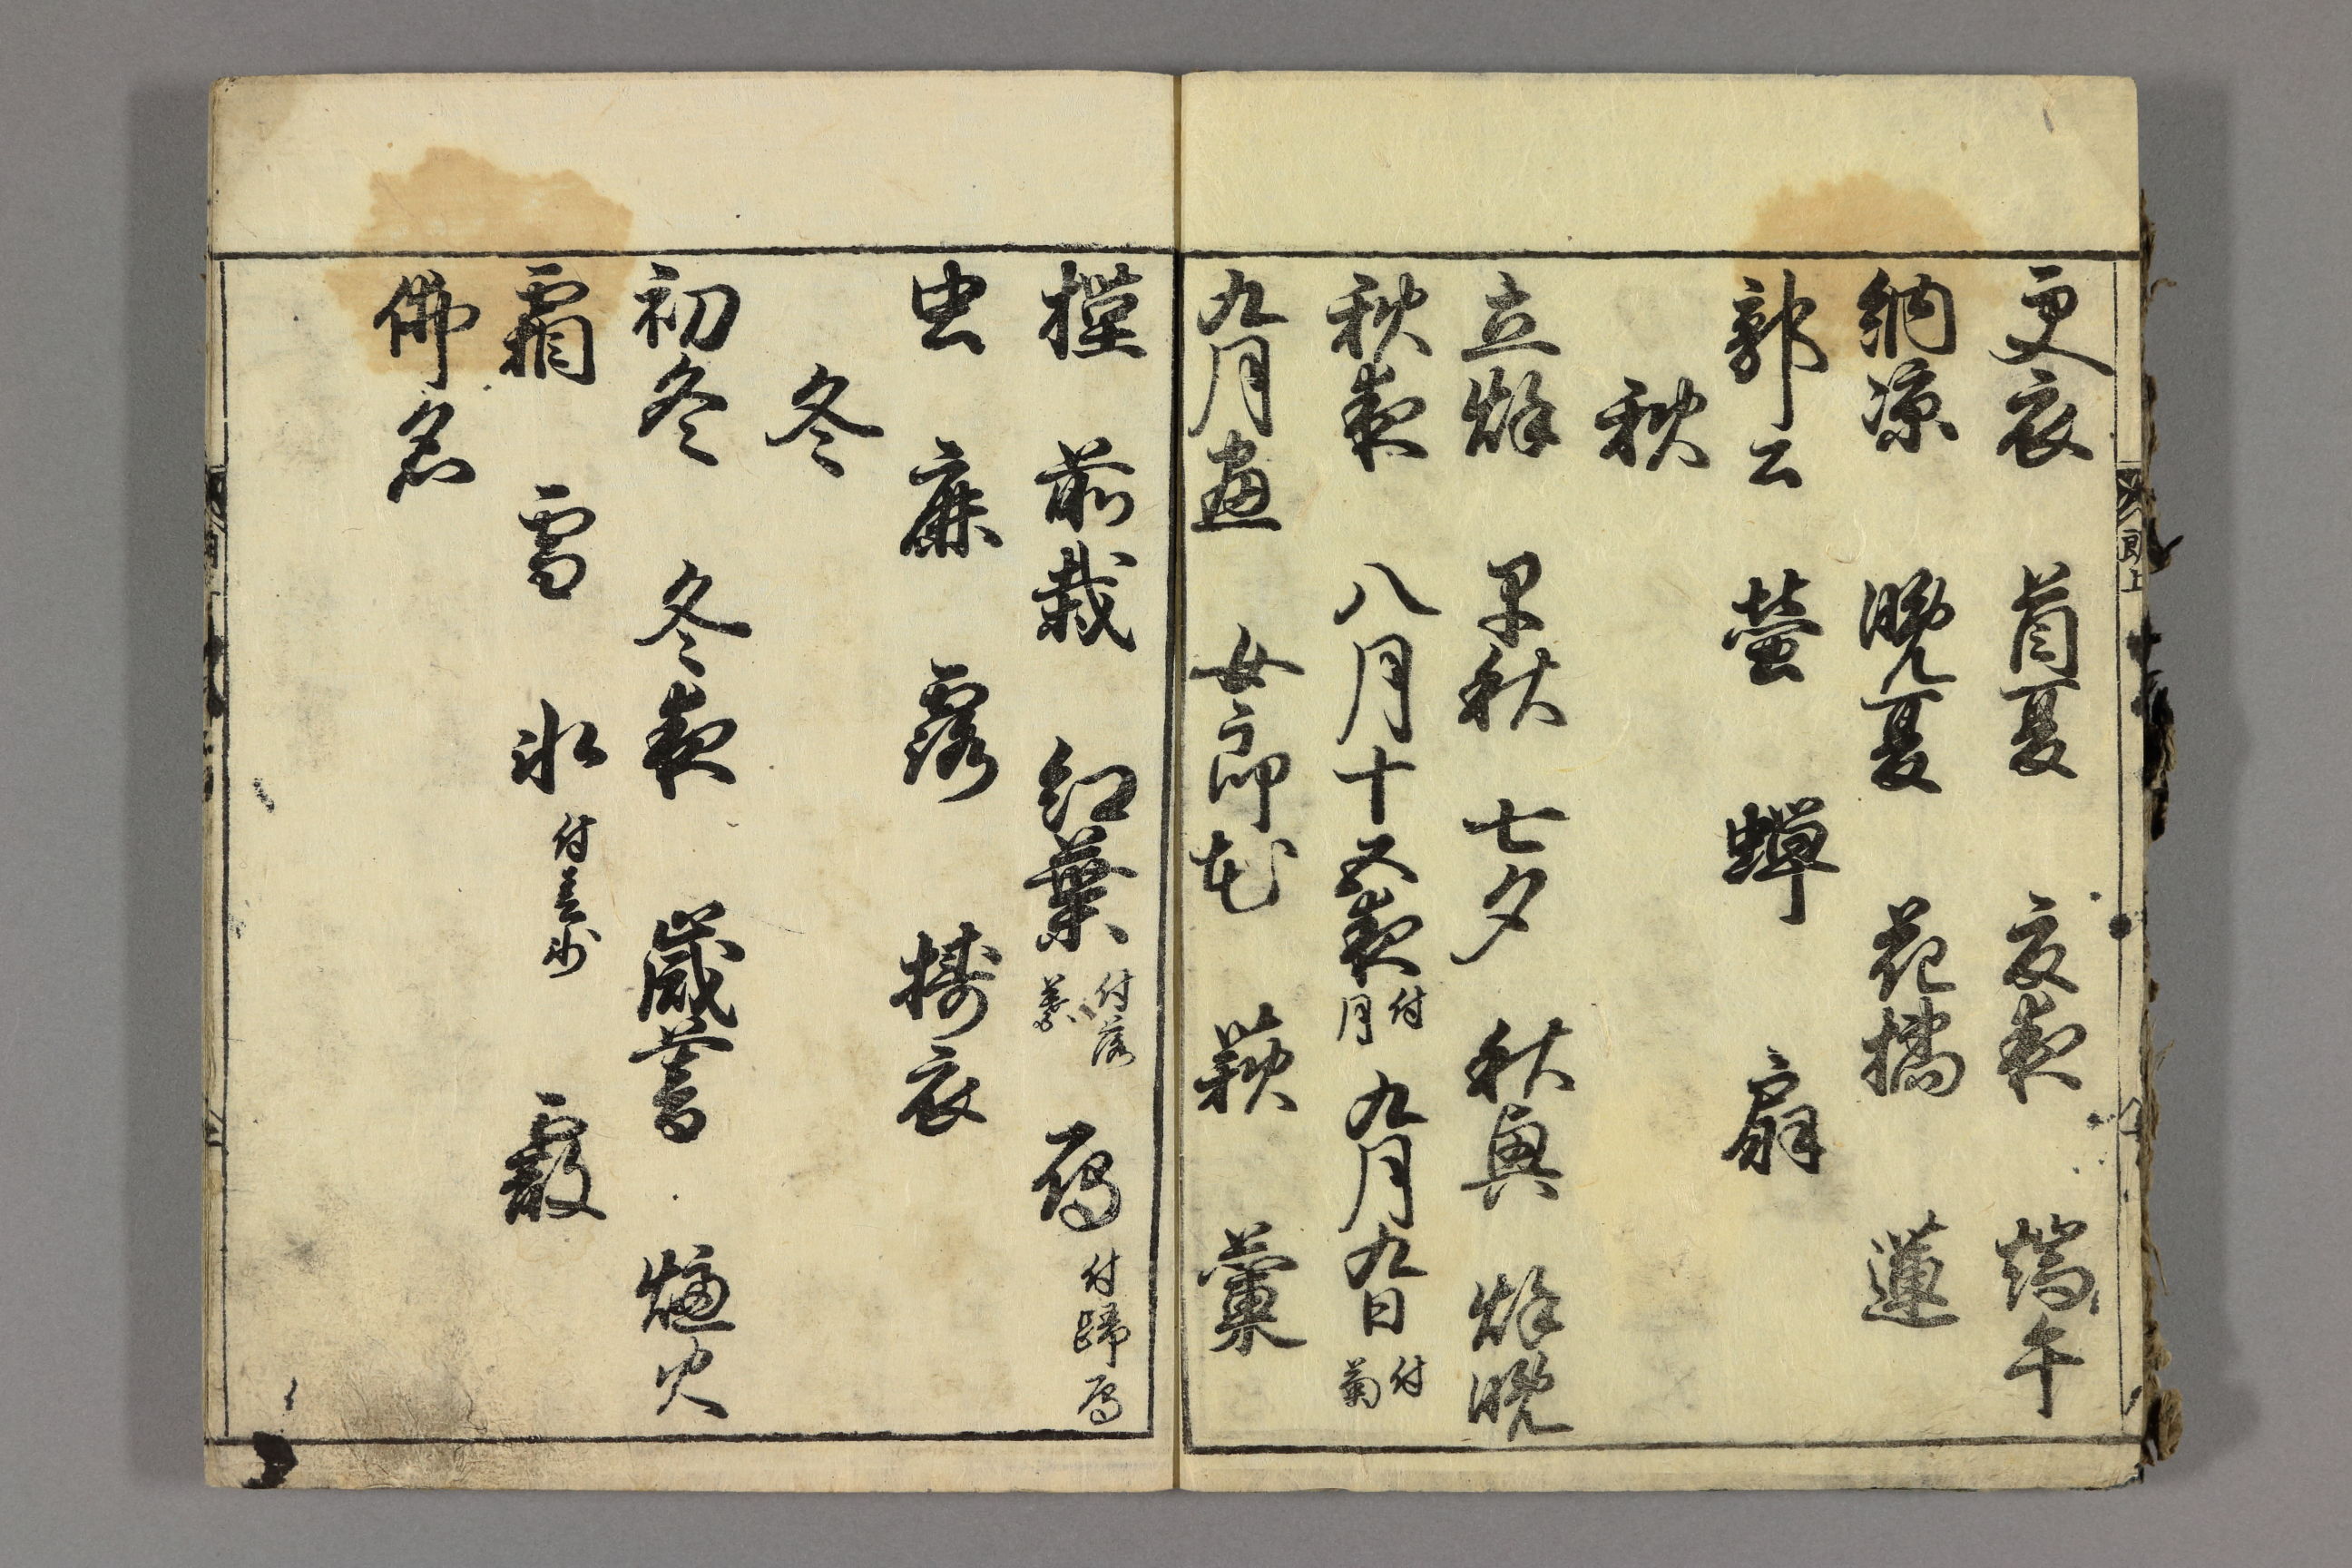 更衣 首夏 夏夜 端午
納凉 晩夏 花橘 蓮
郭公 螢 蟬 扇
秋
立秌 早秋 七夕 秋興 秌晩
秋夜 八月十五夜 付月 九月九日 付菊
九月盡 女郎花 萩 蘭
槿 前栽 紅葉 付落葉 鴈 付歸鴈
虫 鹿 露 擣衣
冬
初冬 冬夜 歳暮 爐火
霜 雪 氷 付春氷 霰
佛名
朗上